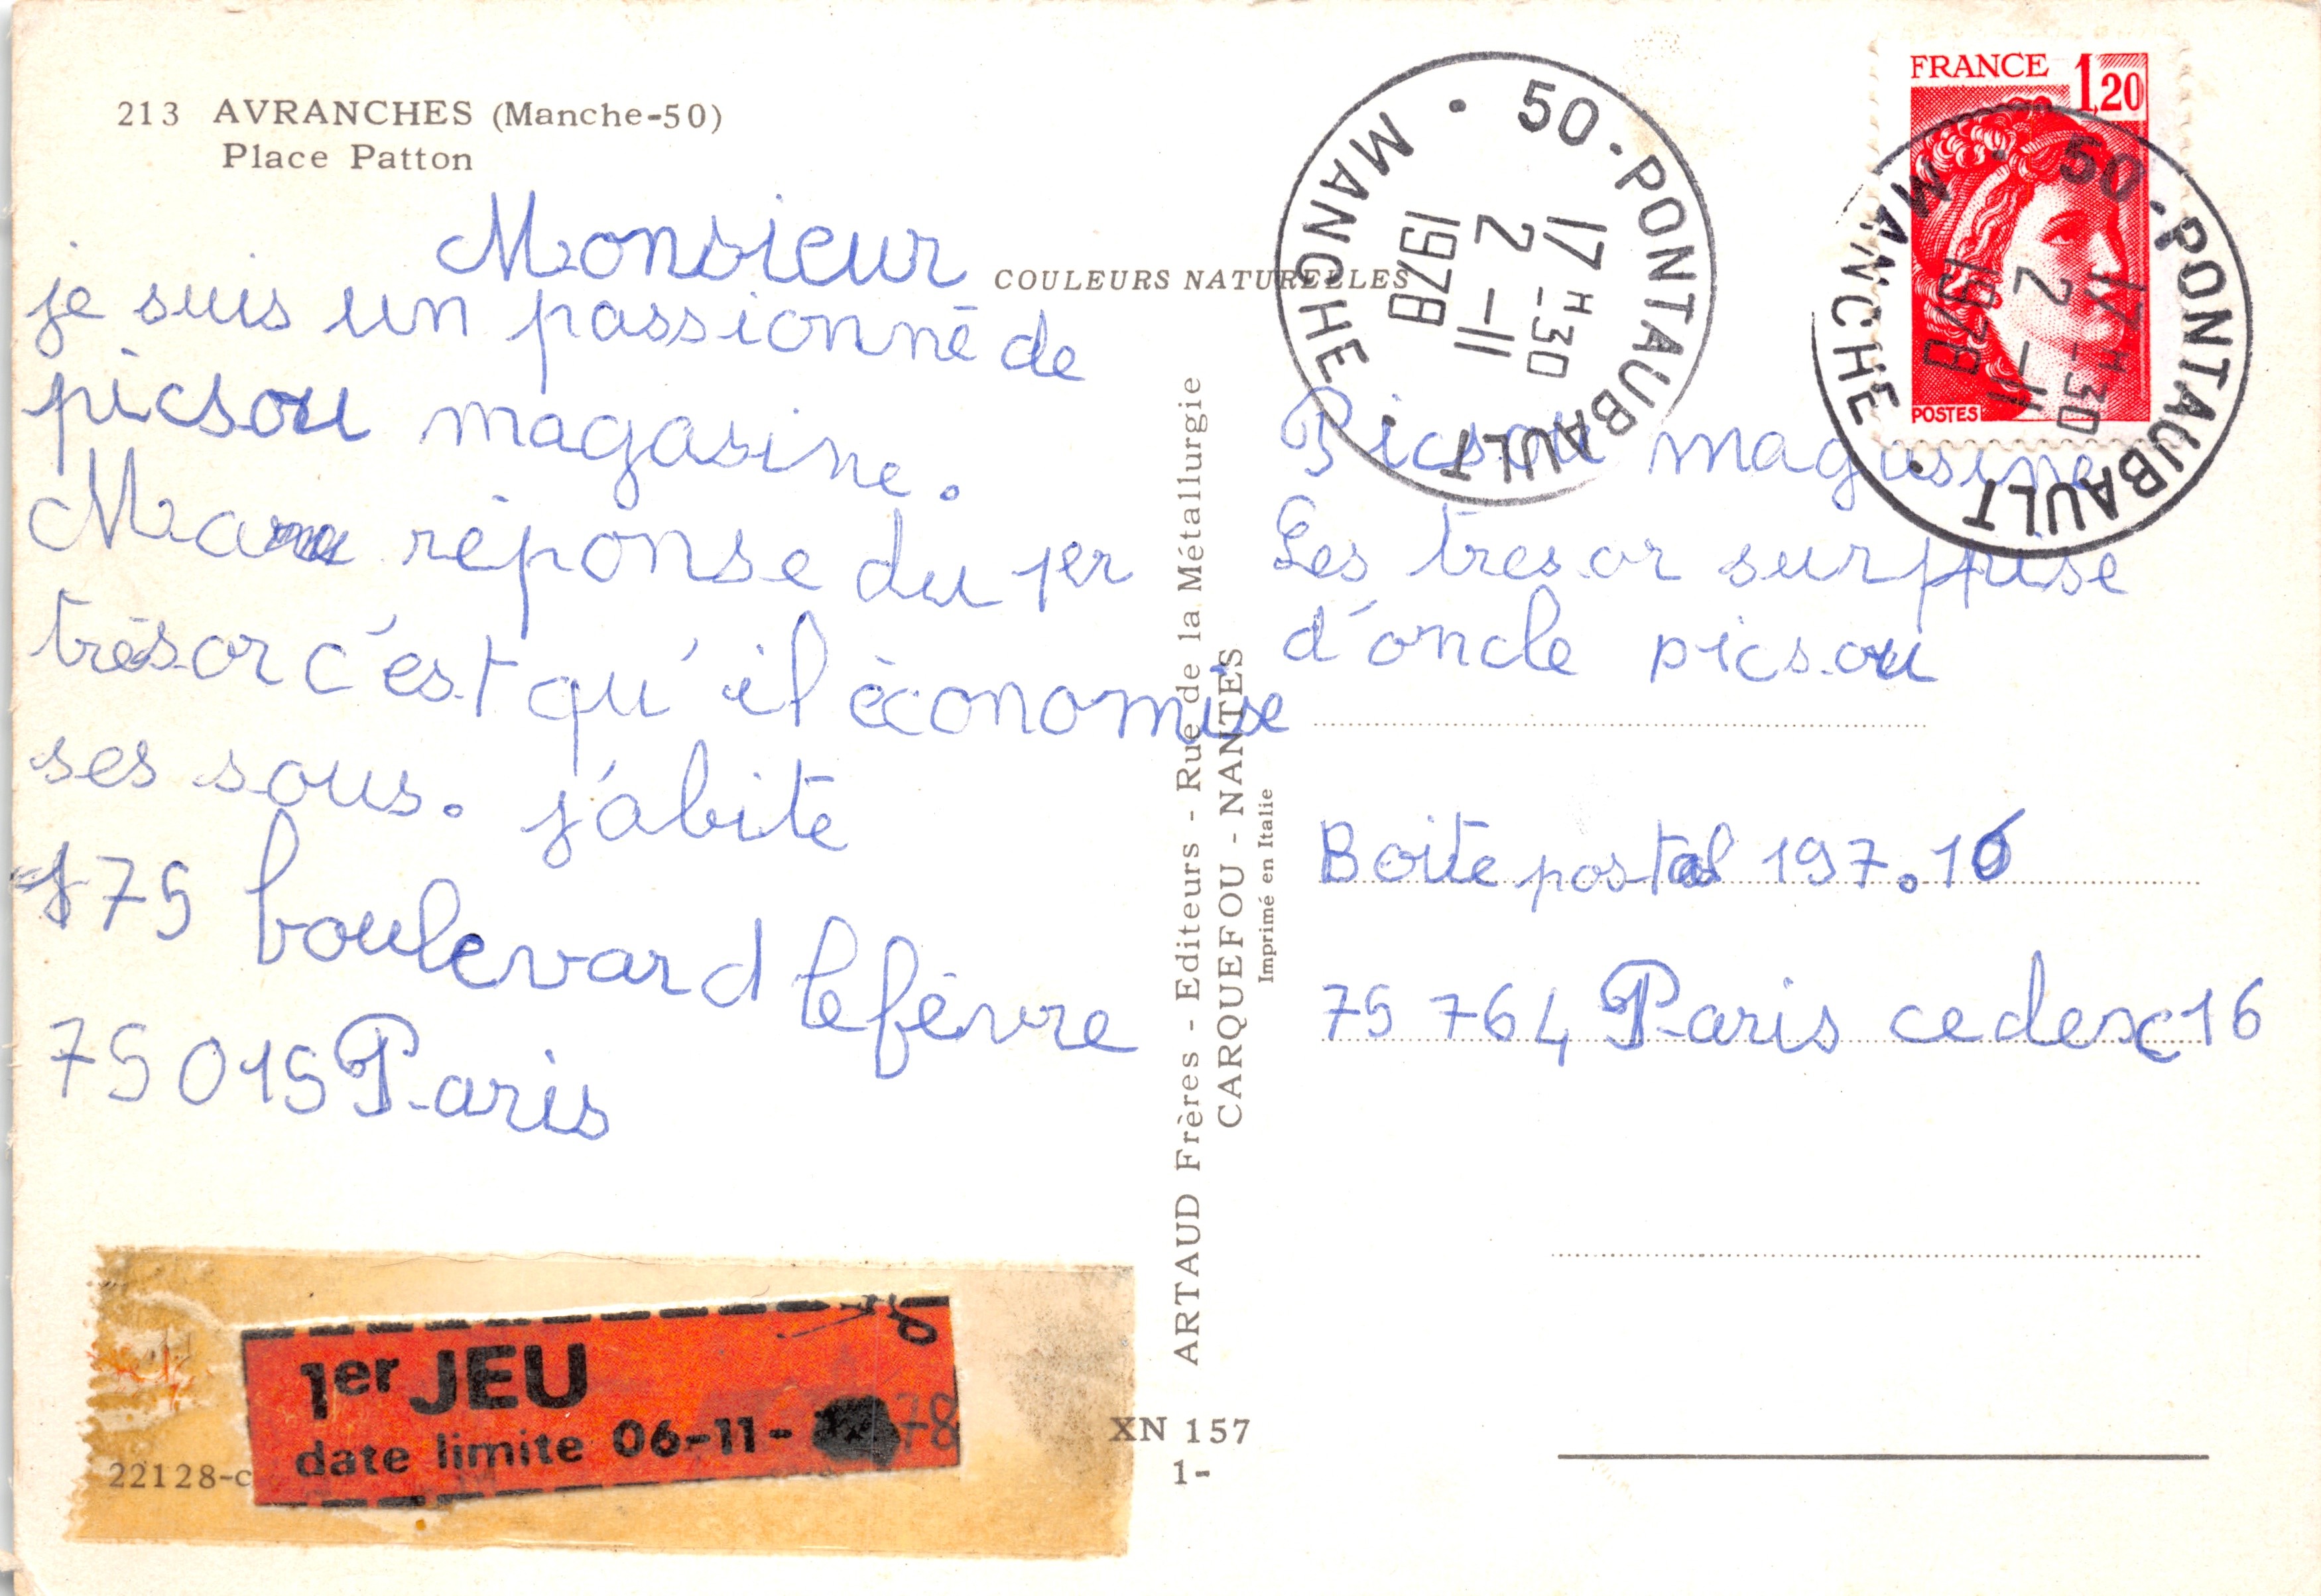 213 AVRANCHES (Manche-50)
Place Patton
COULEURS NATURELLES
Monsieur
je suis un passionné de
picsou magasine.
Ma réponse du 1er
trésor c'est qu'il économise
ses sous. j'abite
175 boulevard lefèvre
75 015 Paris
1er JEU
date limite 06-11- 78
22128-c
ARTAUD Frères - Editeurs - Rue de la Métallurgie
CARQUEFOU - NANTES
Imprimé en Italie
XN 157
1-
50 · PONTAUBAULT · MANCHE ·
17 H -30
2 -11
1978
FRANCE 1,20
POSTES
50 · PONTAUBAULT · MANCHE ·
17 H -30
2 -11
1978
Picsou magasine
Les tresor surprise
d'oncle picsou
Boite postal 197.16
75 764 Paris cedex 16